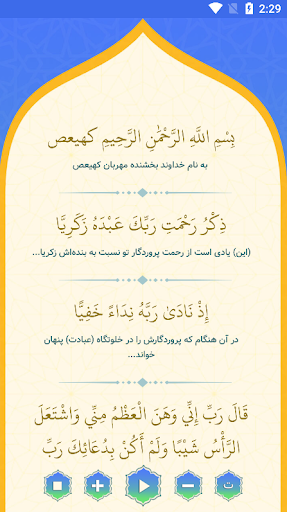 2:29
بِسْمِ اللَّهِ الرَّحْمَٰنِ الرَّحِيمِ كهيعص
به نام خداوند بخشنده مهربان کهیعص
ذِكْرُ رَحْمَتِ رَبِّكَ عَبْدَهُ زَكَرِيَّا
(این) یادی است از رحمت پروردگار تو نسبت به بنده‌اش زکریا...
إِذْ نَادَىٰ رَبَّهُ نِدَاءً خَفِيًّا
در آن هنگام که پروردگارش را در خلوتگاه (عبادت) پنهان
خواند...
قَالَ رَبِّ إِنِّي وَهَنَ الْعَظْمُ مِنِّي وَاشْتَعَلَ
الرَّأْسُ شَيْبًا وَلَمْ أَكُنْ بِدُعَائِكَ رَبِّ
ت